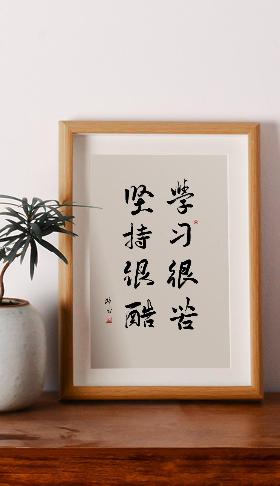 學习很苦
坚持很酷